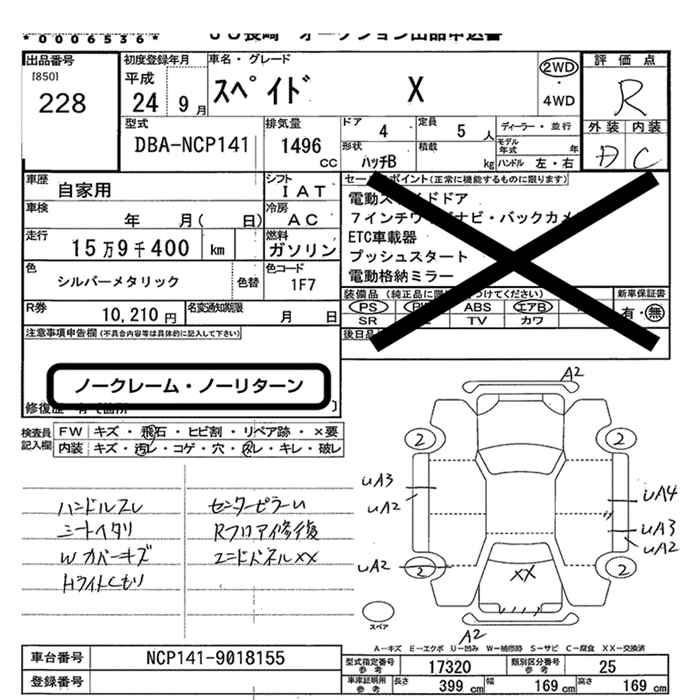 *0006536* JU長崎 オークション出品申込書
出品番号
[850]
228
初度登録年月
平成
24 9 月
車名・グレード
スペイド X
2WD
・
4WD
評価点
R
型式
DBA-NCP141
排気量
1496
CC
ドア 4
定員 5 人
ディーラー・並行
外装 内装
C
形状 ハッチB
積載 kg
モデル年式 年
ハンドル 左・右
車歴
自家用
シフト
IAT
セールスポイント(正常に機能するものに限ります)
電動スライドドア
7インチワ ナビ・バックカメ
ETC車載器
プッシュスタート
電動格納ミラー
車検
年 月( 日)
冷房
AC
走行
15万9千400 km
燃料
ガソリン
色
シルバーメタリック
色替
色コード
1F7
装備品(純正品に限 つけてください)
PS ABS エアB
SR TV カワ
新車保証書
有・無
R券
10,210 円
名変通知期限
月 日
後日品
注意事項申告欄(不具合内容等は具体的に記入して下さい)
ノークレーム・ノーリターン
検査員記入欄
FW キズ・飛石・ヒビ割・リペア跡・×要
内装 キズ・汚レ・コゲ・穴・スレ・キレ・破レ
ハンドルスレ
シートヘタリ
W カバーキズ
Hライトくもリ
センターピラーU
Rフロア修復
エンドパネルXX
A2
2
2
uA3
uA2
uA4
uA3
uA2
uA2
2
2
XX
スペア
A2
A-キズ E-エクボ U-凹み W-補修跡 S-サビ C-腐食 XX-交換済
車台番号
NCP141-9018155
登録番号
型式指定番号
参考
17320
類別区分番号
参考
25
車庫証明用
参考
長さ 399 cm
幅 169 cm
高さ 169 cm